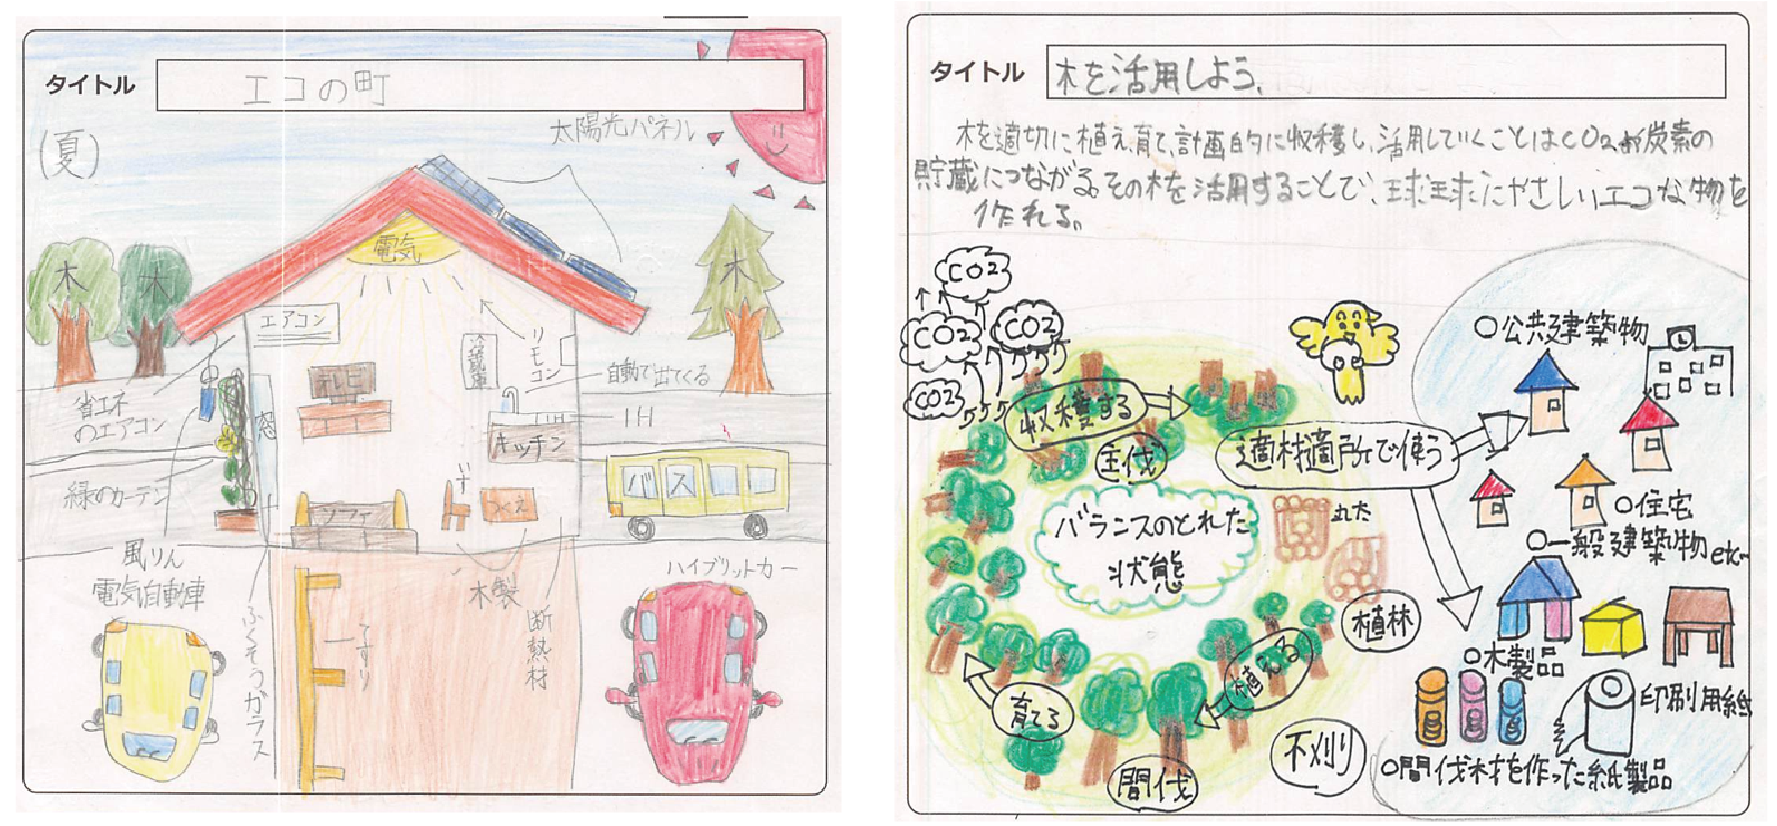 タイトル
エコの町
(夏)
太陽光パネル
電気
木
木
木
エアコン
テレビ
冷蔵庫
リモコン
自動で出てくる
IH
IH
キッチン
省エネ
のエアコン
窓
緑のカーテン
ソファ
いす
つくえ
バス
風りん
電気自動車
ハイブリットカー
木製
断熱材
てすり
ふくそうガラス
タイトル
木を活用しよう。
木を適切に植え、育て、計画的に収穫し、活用していくことはCO2 炭素の
貯蔵につながる。その木を活用することで、球球にやさしいエコな物を
作れる。
CO2
CO2
CO2
CO2
収穫する
主伐
適材適所で使う
バランスのとれた
状態
丸た
植林
植える
育てる
間伐
下刈り
○公共建築物
○住宅
○一般建築物etc
○木製品
印刷用紙
○間伐材を作った紙製品